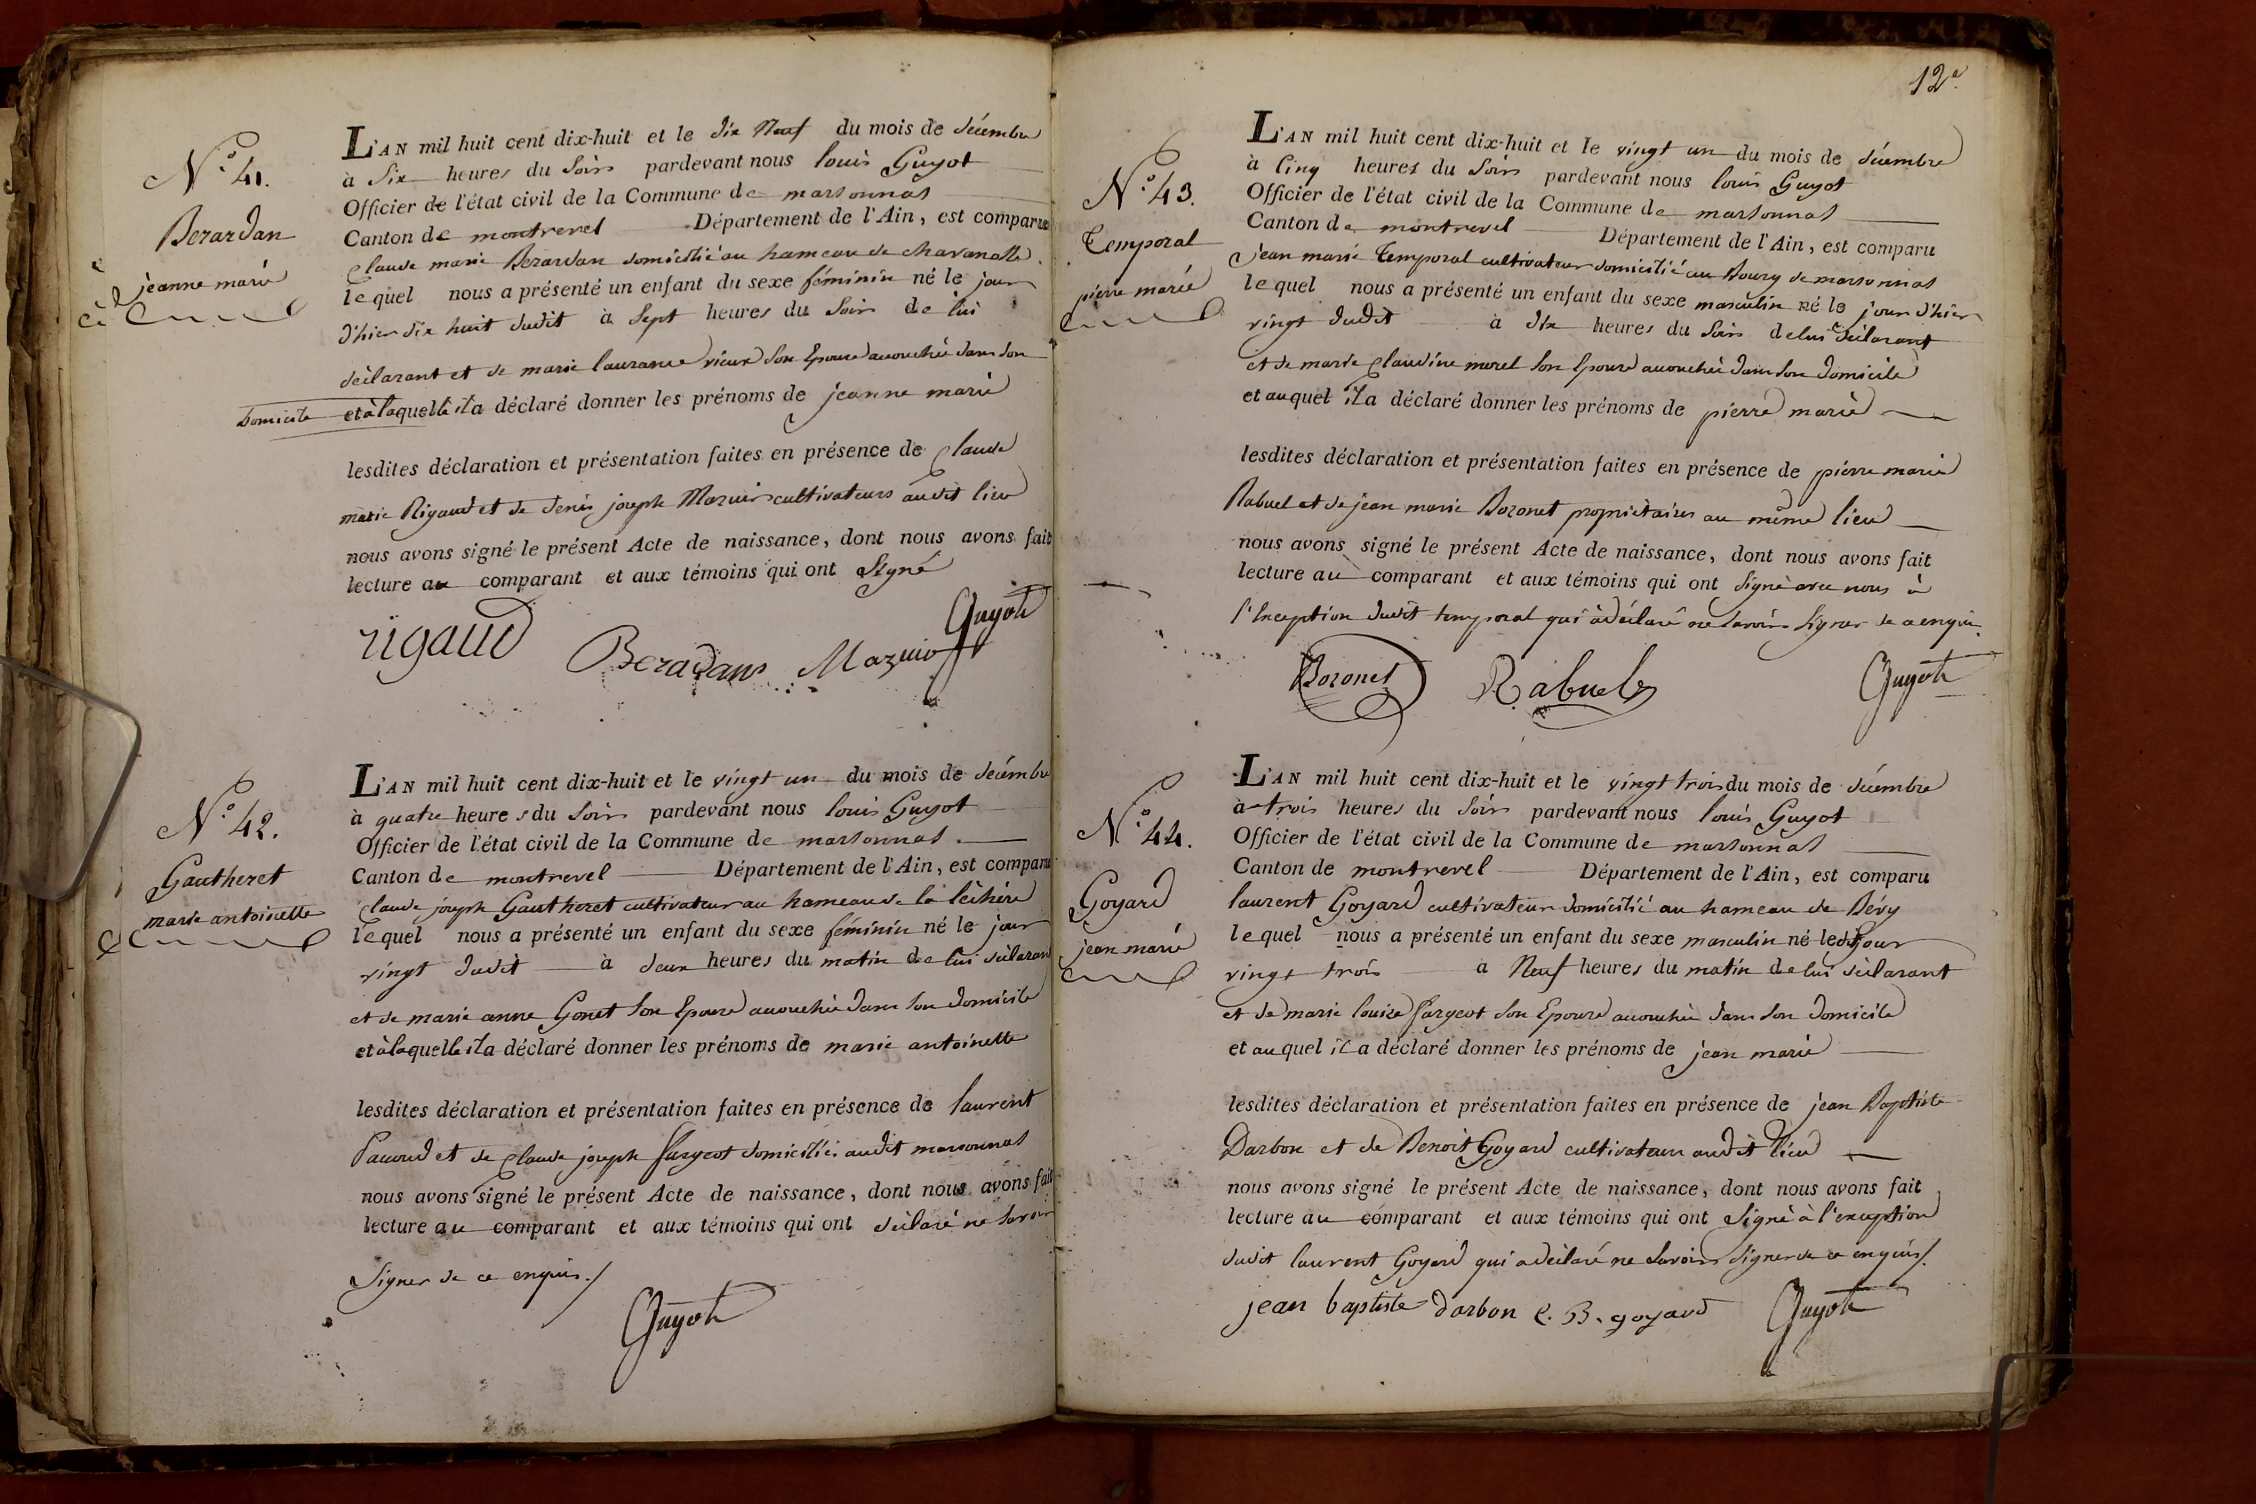 N.° 41.
Berardan
jeanne marie
L'AN mil huit cent dix-huit et le dix Neuf du mois de décembre
à Six heures du Soir pardevant nous louis Guyot
Officier de l'état civil de la Commune de marsonnas
Canton de montrevel Département de l'Ain, est comparu
Claude marie Berardan domicilié au hameau de charanolle
lequel nous a présenté un enfant du sexe féminin né le jour
d'hier dix huit dudit à Sept heures du Soir de lui
déclarant et de marie laurance vieux son Epouse accouchée dans son
domicile et à laquelle il a déclaré donner les prénoms de jeanne marie
lesdites déclaration et présentation faites en présence de Claude
marie Rigaud et de denis joseph Mazuir cultivateurs audit lieu
nous avons signé le présent Acte de naissance, dont nous avons fait
lecture au comparant et aux témoins qui ont Signé
rigaud Beradans Mazuir Guyot
N.° 42.
Gautheret
marie antoinette
L'AN mil huit cent dix-huit et le vingt un du mois de décembre
à quatre heures du Soir pardevant nous louis Guyot
Officier de l'état civil de la Commune de marsonnas
Canton de montrevel Département de l'Ain, est comparu
Claude joseph Gautheret cultivateur au hameau de la léchère
lequel nous a présenté un enfant du sexe féminin né le jour
vingt dudit à deux heures du matin de lui déclarant
et de marie anne Gonet son Epouse accouchée dans son domicile
et à laquelle il a déclaré donner les prénoms de marie antoinette
lesdites déclaration et présentation faites en présence de laurent
Pacoud et de Claude joseph Fargeot domiciliés audit marsonnas
nous avons signé le présent Acte de naissance, dont nous avons fait
lecture au comparant et aux témoins qui ont déclaré ne savoir
Signer de ce enquis./
Guyot
12e
N.° 43.
Temporal
pierre marie
L'AN mil huit cent dix-huit et le vingt un du mois de décembre
à Cinq heures du Soir pardevant nous louis Guyot
Officier de l'état civil de la Commune de marsonnas
Canton de montrevel Département de l'Ain, est comparu
jean marie Temporal cultivateur domicilié au Bourg de marsonnas
lequel nous a présenté un enfant du sexe masculin né le jour d'hier
vingt dudit à dix heures du Soir de lui déclarant
et de marie Claudine morel son Epouse accouchée dans son domicile
et auquel il a déclaré donner les prénoms de pierre marie
lesdites déclaration et présentation faites en présence de pierre marie
Rabuel et de jean marie Bozonet propriétaires au même lieu
nous avons signé le présent Acte de naissance, dont nous avons fait
lecture au comparant et aux témoins qui ont Signé avec nous à
l'Exception dudit temporal qui a déclaré ne savoir Signer de ce enquis.
Bozonet Rabuel Guyot
N.° 44.
Goyard
jean marie
L'AN mil huit cent dix-huit et le vingt trois du mois de décembre
à trois heures du Soir pardevant nous louis Guyot
Officier de l'état civil de la Commune de marsonnas
Canton de montrevel Département de l'Ain, est comparu
laurent Goyard cultivateur domicilié au hameau de Bévy
lequel nous a présenté un enfant du sexe masculin né ledit jour
vingt trois à Neuf heures du matin de lui déclarant
et de marie louise Fargeot son Epouse accouchée dans son domicile
et auquel il a déclaré donner les prénoms de jean marie
lesdites déclaration et présentation faites en présence de jean Baptiste
Darbon et de Benoit Goyard cultivateurs audit lieu
nous avons signé le présent Acte de naissance, dont nous avons fait
lecture au comparant et aux témoins qui ont Signé à l'exception
dudit laurent Goyard qui a déclaré ne Savoir Signer de ce enquis/.
jean baptiste darbon C. B. goyard Guyot